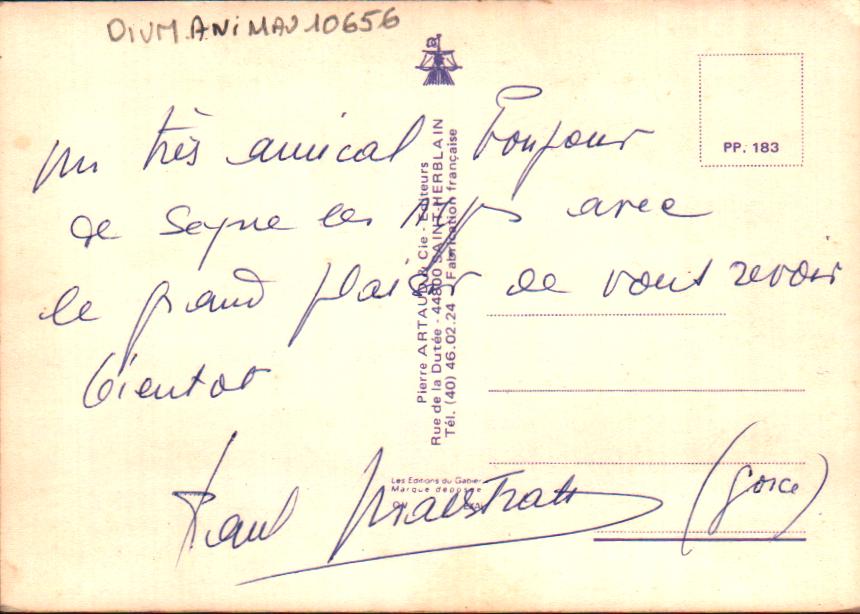 DIVM ANIMAU 10656
PP. 183
Un très amical Bonjour
de Seyne les Alpes avec
le grand plaisir de vous revoir
bientot
Paul
(Gorce)
Pierre ARTAUD & Cie - Editeurs
Rue de la Dutée - 44800 SAINT-HERBLAIN
Tél. (40) 46.02.24 - Fabrication française
Les Editions du Gabier
Marque déposée